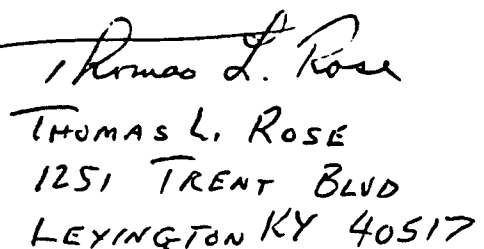 Thomas L. Rose
THOMAS L. ROSE
1251 TRENT BLVD
LEXINGTON KY 40517